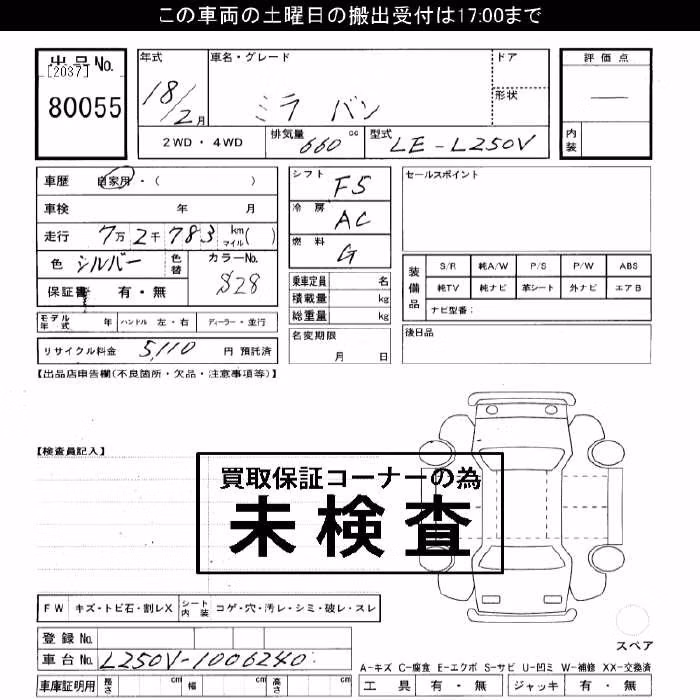 この車両の土曜日の搬出受付は17:00まで
出品No.
[2037]
80055
年式
18/2月
車名・グレード
ミラ バン
ドア
形状
評価点
—
内装
2WD・4WD
排気量 660 cc
型式 LE-L250V
車歴 自家用・( )
車検 年 月
走行 7万2千783km マイル( )
色 シルバー 色替 カラーNo. S28
保証書 有・無
シフト F5
冷房 AC
燃料 G
セールスポイント
乗車定員 名
積載量 kg
総重量 kg
装備品
S/R 純A/W P/S P/W ABS
純TV 純ナビ 革シート 外ナビ エアB
ナビ型番:
モデル年式 年 ハンドル 左・右 ディーラー・並行
名変期限
月 日
後日品
リサイクル料金 5,110 円 預託済
【出品店申告欄(不良箇所・欠品・注意事項等)】
【検査員記入】
買取保証コーナーの為
未検査
FW キズ・トビ石・割レX シート内装 コゲ・穴・汚レ・シミ・破レ・スレ
登録No.
車台No. L250V-1006240
車庫証明用 長さ cm 幅 cm 高さ cm
スペア
A-キズ C-腐食 E-エクボ S-サビ U-凹ミ W-補修 XX-交換済
工具 有・無 ジャッキ 有・無